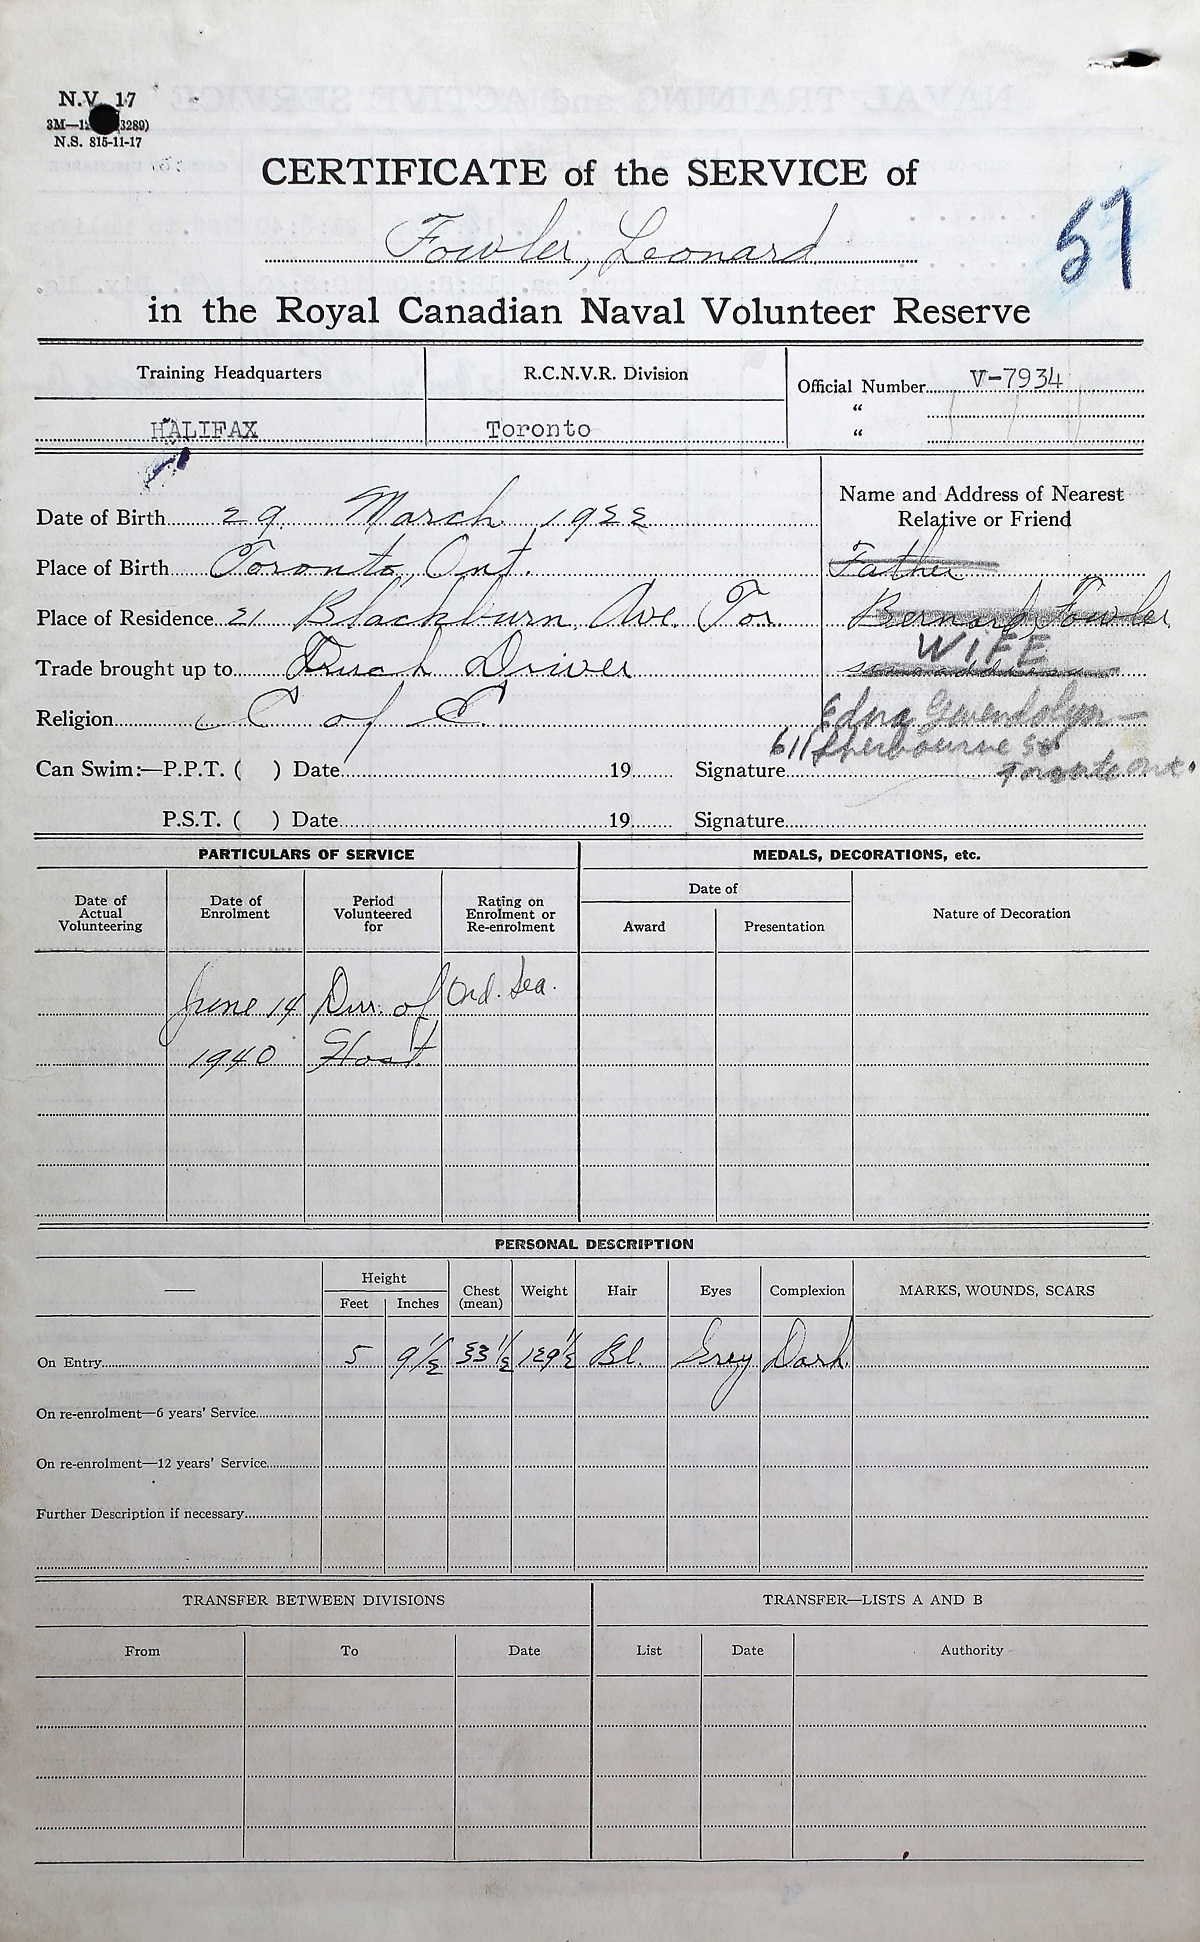 N.V. 17
3M—1 (3289)
N.S. 815-11-17
CERTIFICATE of the SERVICE of
57
Fowler, Leonard
in the Royal Canadian Naval Volunteer Reserve
Training Headquarters
R.C.N.V.R. Division
Official Number V-7934
"
HALIFAX
Toronto
"
Name and Address of Nearest
Relative or Friend
Date of Birth 29 March 1922
Place of Birth Toronto, Ont.
Father
Place of Residence 21 Blackburn Ave. Tor.
Bernard Fowler
WIFE
Trade brought up to Truck Driver
same address
Religion C of E
Edna Gwendolyn—
611 Sherbourne St.
Toronto Ont.
Can Swim:—P.P.T. ( ) Date 19 Signature
P.S.T. ( ) Date 19 Signature
PARTICULARS OF SERVICE
MEDALS, DECORATIONS, etc.
Date of
Actual
Volunteering
Date of
Enrolment
Period
Volunteered
for
Rating on
Enrolment or
Re-enrolment
Date of
Award
Presentation
Nature of Decoration
June 14 Dur. of Ord. Sea.
1940 Host.
PERSONAL DESCRIPTION
—
Height
Feet
Inches
Chest
(mean)
Weight
Hair
Eyes
Complexion
MARKS, WOUNDS, SCARS
On Entry 5 9½ 33½ 129½ Bl. Grey Dark
On re-enrolment—6 years' Service
On re-enrolment—12 years' Service
Further Description if necessary
TRANSFER BETWEEN DIVISIONS
TRANSFER—LISTS A AND B
From
To
Date
List
Date
Authority